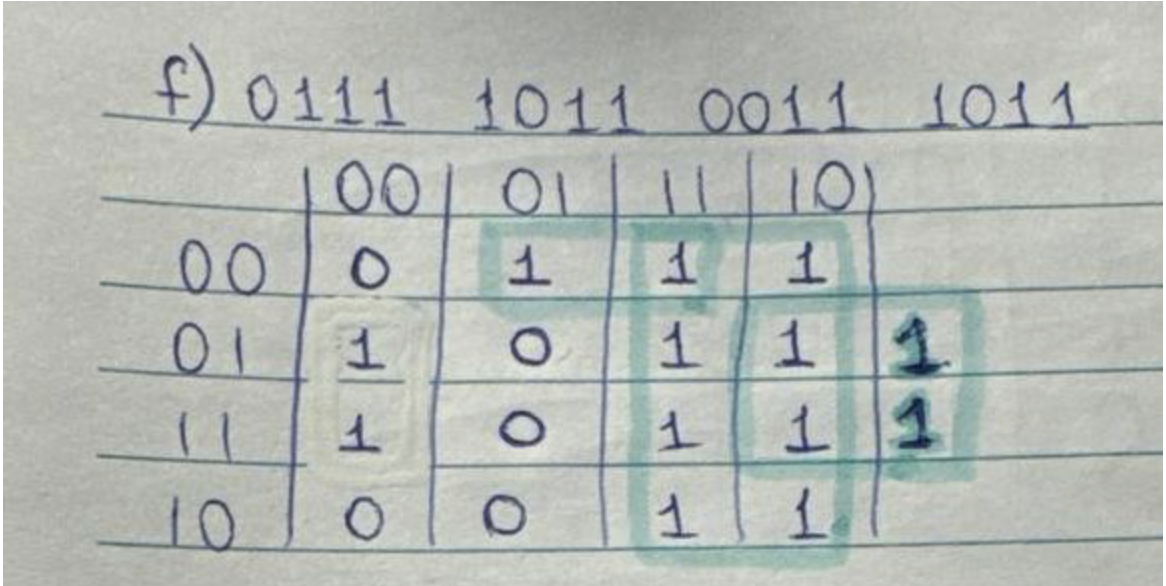 f) 0111 1011 0011 1011
00 01 11 10
00 0 1 1 1
01 1 0 1 1 1
11 1 0 1 1 1
10 0 0 1 1